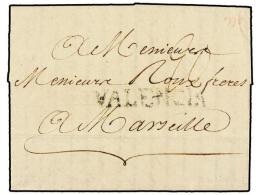 A Messieurs
Messieurs Roux freres
VALENCIA
A Marseille